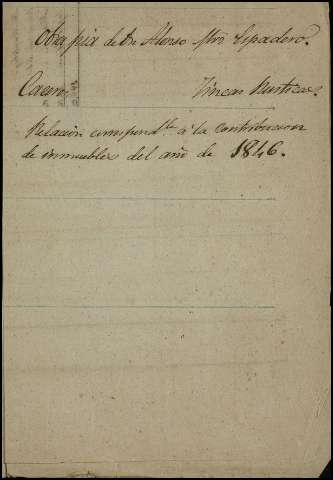 Obra pia de Dn Alonso Mro. Espadero.
Fincas Rusticas.
Relacion correspondte á la contribucion
de inmuebles del año de 1846.